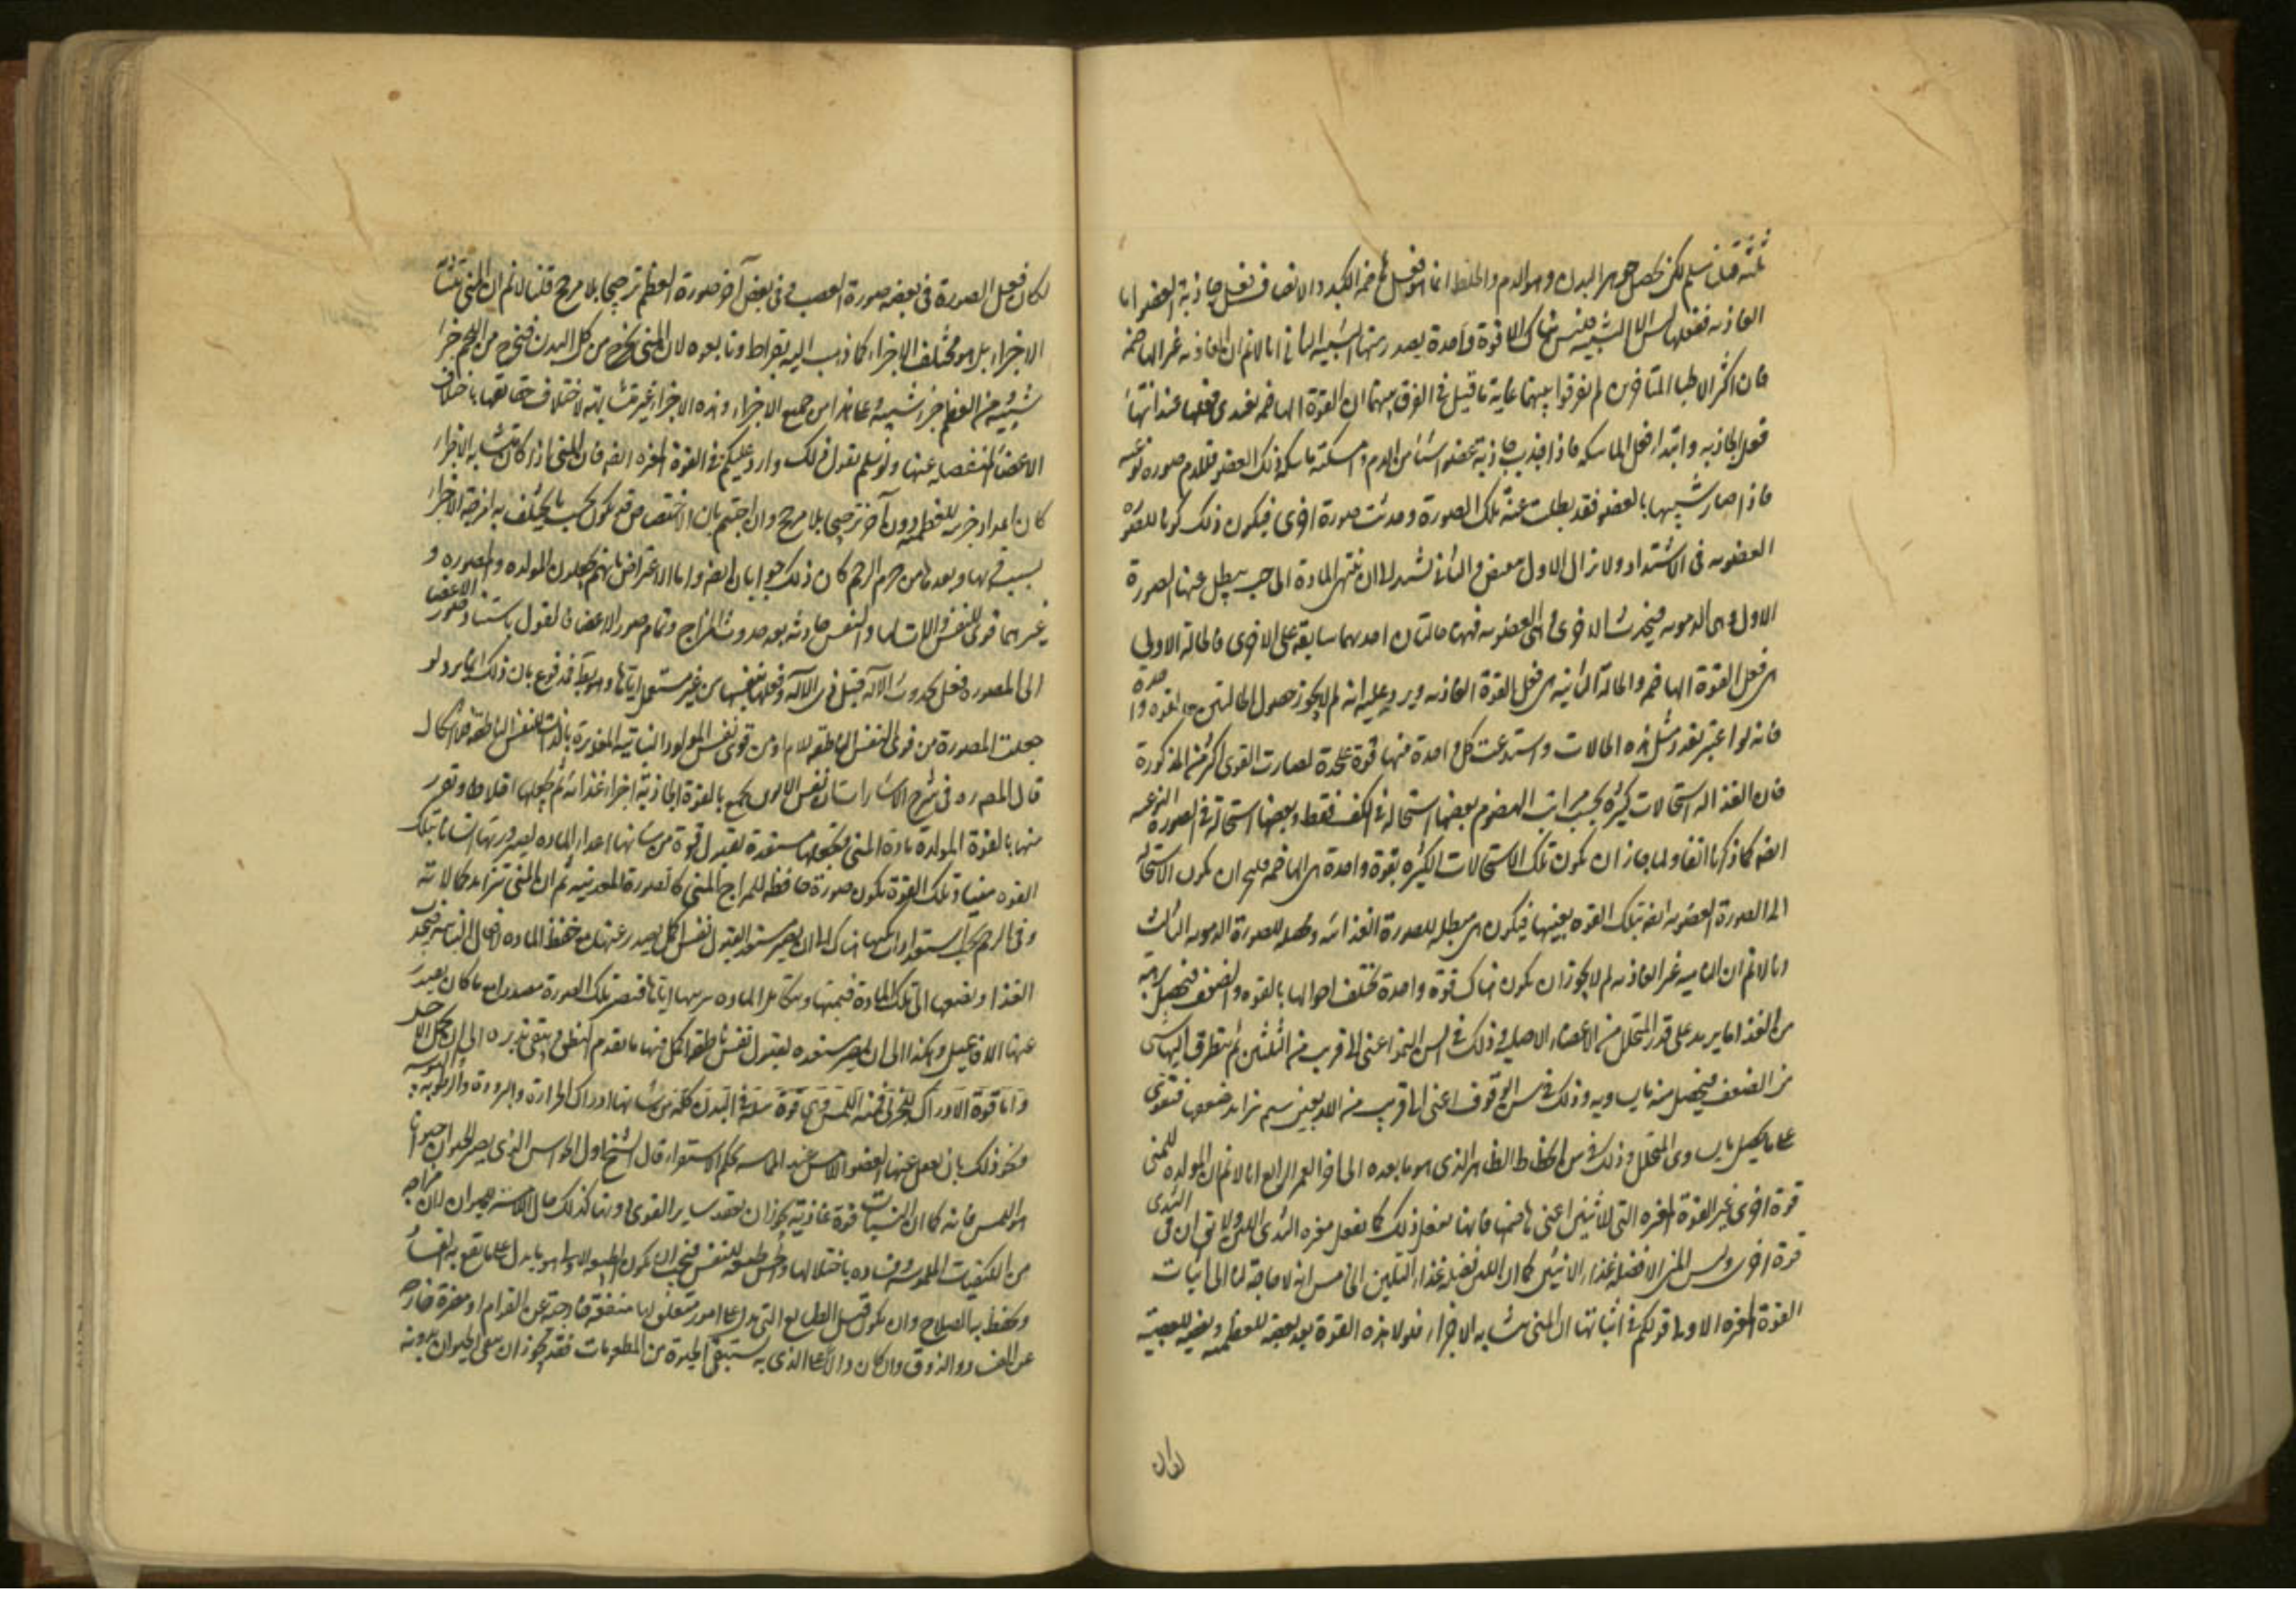 ثلثة قيل نسلم لكن تحصيل جوهر البدن وهو الدم والخلط انما هو فعل هاضمة الكبد والالصاق فعل جاذبة العضو اما
الغاذيه ففعلها ليس الا التشبيه فليس هناك الا قوة واحدة يصدر منها التشبيه الثانى انا لا نم ان الغاذيه غير الهاضمة
فان اكثر الاطبا المتاخرين لم يفرقوا بينهما غاية ما قيل فى الفرق بينهما ان القوة الهاضمه يبتدى فعلها عند انتهاء
فعل الجاذبه وابتداء فعل الماسكه فاذا جذبت جاذبة عضو شيئا من الدم وامسكته ماسكة ذلك العضو فللدم صوره نوعيه
فاذا صار شبيها بالعضو فقد بطلت عنه تلك الصورة وحدثت صورة اخرى فيكون ذلك كونا للصورة
العضويه فى الاشتداد ولا يزال الاول ينقص والثانى يشتد الى ان تنتهى المادة الى حيث يبطل عنها الصورة
الاولى وهى الدمويه فيحدث الاخرى وهى العضويه فههنا حالتان احديهما سابقة على الاخرى فالحالة الاولى
هى فعل القوة الهاضمه والحالة الثانيه هى فعل القوة الغاذيه ويرد عليه انه لم لا يجوز حصول الحالتين بقوة واحدة
فانه لو اعتبر تعدد مثل هذه الحالات واستدعت كل واحدة منها قوة علحدة لصارت القوى اكثر من المذكورة
فان الغذا له استحالات كثيره بحسب مراتب الهضوم بعضها استحالة فى الكيف فقط وبعضها استحالة فى الصورة النوعيه
ايضه كما ذكرنا انفا ولما جاز ان يكون تلك الاستحالات الكثيره بقوة واحدة هى الهاضمه فليجز ان يكون الاستحالة
الى الصورة العضويه ايضه بتلك القوه بعينها فيكون هى مبطله للصورة الغذائيه ومحصله للصورة الدمويه الثالث
انا لا نم ان الناميه غير الغاذيه لم لا يجوز ان يكون هناك قوة واحدة تختلف احوالها بالقوه والضعف فيحصل
من الغذا ما يزيد على قدر المتحلل من الاعضاء الاصليه وذلك فى سن النمو اعنى الى قريب من الثلثين ثم يتطرق اليها شى
من الضعف فيحصل منه ما يساويه وذلك فى سن الوقوف اعنى الى قريب من الاربعين ثم يتزايد ضعفها فتقوى
على تحصيل ما يساوى المتحلل وذلك فى سن الانحطاط الظاهر الذى هو ما بعده الى اخر العمر الرابع انا لا نم ان المولده للمنى
قوة اخرى غير القوة المغيره التى للانثيين اعنى هاضمتها فانها تفعل ذلك كما يفعل مغيره الثدى اللبن ولا يق ان فى الثدى
قوة اخرى وليس المنى الا فضله غذاء الانثيين كما ان اللبن فضله غذاء الثديين الخامس انه لا حاجة لنا الى اثبات
القوة المغيره الاولى قولكم فى اثباتها ان المنى متشابه الاجزاء فلولا هذه القوة يعد بعضه للعظميه وبعضه للعصبيه
لكان
لكان فعل الصورة فى بعضه صورة العصب وفى بعض آخر صورة العظم ترجيحا بلا مرجح قلنا لا نم ان المنى متشابه
الاجزاء بل هو مختلف الاجزاء كما ذهب اليه بقراط وتابعوه لان المنى يخرج من كل البدن فيخرج من اللحم جزء
شبيه ومن العظم جزء شبيه وعلى هذا من جميع الاجزاء وهذه الاجزاء غير متشابهة لاختلاف حقايقها باختلاف
الاعضاء المنفصله عنها ولو سلم نقول ذلك وارد عليكم فى القوة المغيره ايضه فان المنى اذا كان متشابه الاجزاء
كان اعداد جزء للعظميه دون آخر ترجيحا بلا مرجح وان اجبتم بان الاختصاص قد يكون بحسب ما يختلف به امزجة الاجزاء
بسبب قربها وبعدها من جرم الرحم كان ذلك جوابا لنا ايضه واما الاعتراض بانهم يجعلون المولده والمصوره و
غيرهما قوى للنفس والات لها والنفس حادثه بعد حدوث المزاج وتمام صور الاعضا فالقول باستناد صور الاعضا
الى المصوره قول بحدوث الآلة قبل ذى الآلة وفعلها بنفسها من غير مستعمل اياها وهو بط فمدفوع بان ذلك انما يرد لو
جعلت المصورة من قوى النفس الناطقه للام او من قوى نفس المولود النباتيه المغايرة بالذات للنفس الناطقه فلا اشكال
قال المص ره فى شرح الاشارات ان نفس الابوين تجمع بالقوة الجاذبة اجزاء غذائيه ثم تجعلها اخلاطا وتفرز
منها بالقوة المولدة مادة المنى وتجعلها مستعدة لقبول قوة من شانها اعداد الماده لصيرورتها انسانا بتلك
القوه منيا وتلك القوة يكون صورة حافظه للمزاج المنى كالصورة المعدنيه ثم ان المنى يتزايد كمالا
فى الرحم بحسب استعدادات يكتسبها هناك الى ان يصير مستعدا لقبول نفس اكمل يصدر عنها مع حفظ الماده افعال النباتيه فتجذب
الغذا وتضيفها الى تلك المادة فتنميها وتتكامل الماده بتربيتها اياها فتصير تلك الصورة مصدرا مع ما كان يصدر
عنها لهذه الافاعيل وهكذا الى ان يصير مستعده لقبول نفس ناطقه يصدر عنها مع جميع ما تقدم النطق وتبقى مدبره الى ان يحل الاجل
واما قوة الادراك للجزئى فمنه اللمس وهى قوة سارية فى البدن كله من شانها ادراك الحرارة والبرودة والرطوبه واليبوسه
ونحو ذلك بان ينفعل عنها العضو اللامس عند المماسه بحكم الاستقراء قال الشيخ اول الحواس الذى يصير به الحيوان حيوانا
هو اللمس فانه كما ان للنبات قوة غاذية يجوز ان يفقد ساير القوى دونها كذلك حال اللامسه للحيوان لان مزاجه
من الكيفيات الملموسه وفساده باختلالها والحس طليعه للنفس فيجب ان يكون الطليعه الاولى هو ما يدل على ما يقع به الفساد
ويحفظ به الصلاح وان يكون قبل الطلايع التى تدل على امور يتعلق بها منفعة خارجة عن القوام او مضرة خارجه
عن الفساد والذوق وان كان دالا على الذى به يستبقى الحيوة من المطعومات فقد يجوز ان يبقى الحيوان بدونه